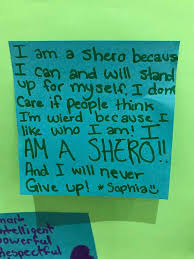 I am a shero becaus
I can and will stand
up for myself. I dont
Care if people think
I'm wierd because I
like who I am! I
AM A SHERO!!
And I will never
Give up! *Sophia
mart
ntelligent
owerful
Respectful